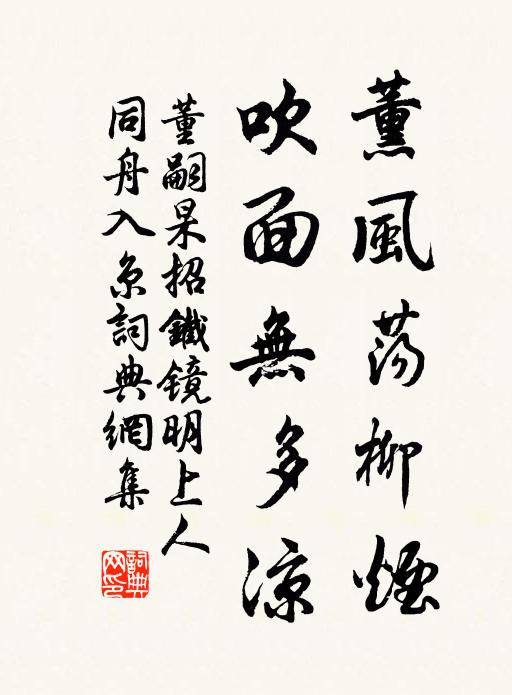 薰風蕩柳煙
吹面無多涼
董嗣杲招鐵镜明上人
同舟入京詞典網集
詞典
网印